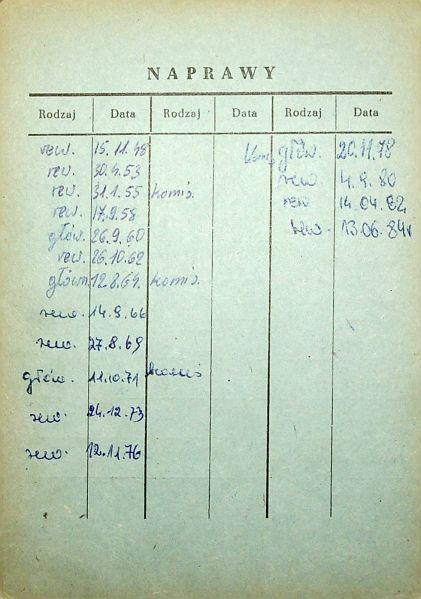 NAPRAWY
Rodzaj Data Rodzaj Data Rodzaj Data
rew. 15.11.48 Kom. głów. 20.11.78
rew. 30.4.53 rew. 4.9.80
rew. 31.1.55 komis. rew 14.04.82
rew. 17.9.58 rew. 13.06.84r
głów. 26.9.60
rew. 26.10.62
główn. 12.8.64. komis.
rew. 14.9.66
rew. 27.8.69
głów. 11.10.71 komis
rew. 24.12.73
rew. 12.11.76